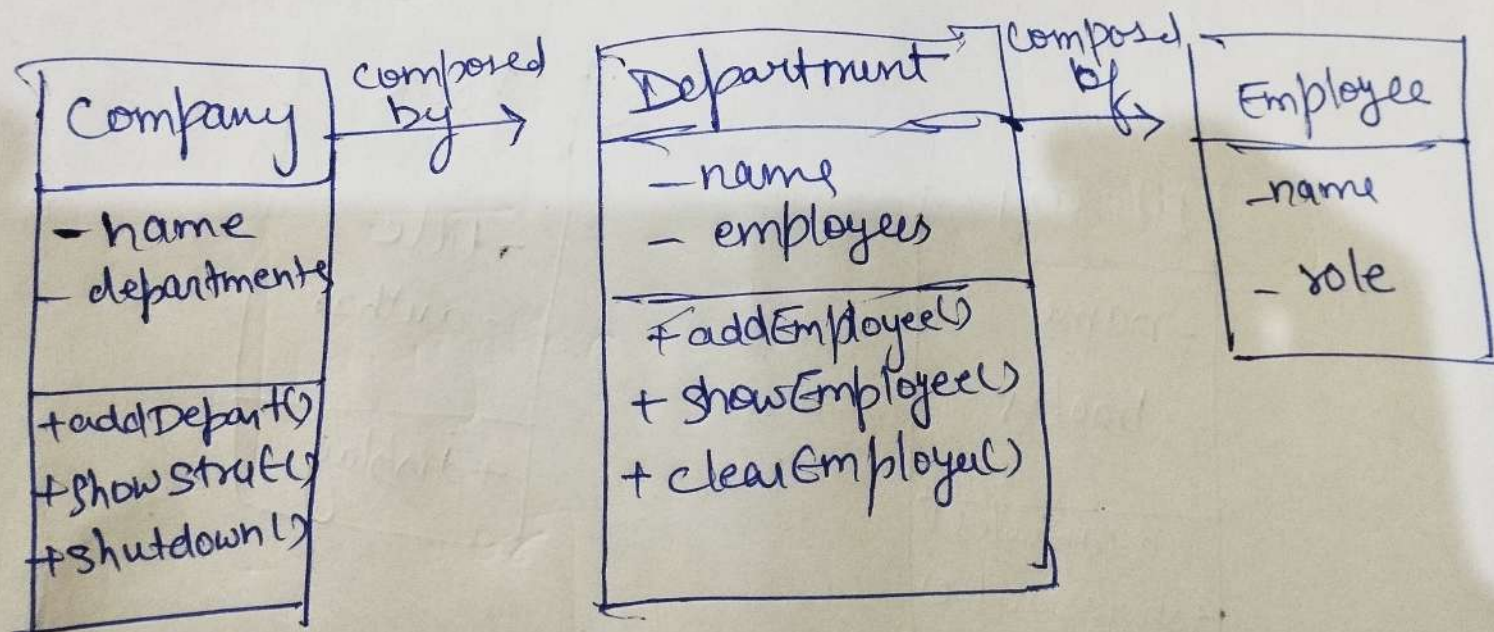 Company
- name
- departments
+addDepart()
+showStruct()
+shutdown()
composed
by
Department
- name
- employees
+ addEmployee()
+ showEmployee()
+ clearEmployee()
composed
by
Employee
- name
- role